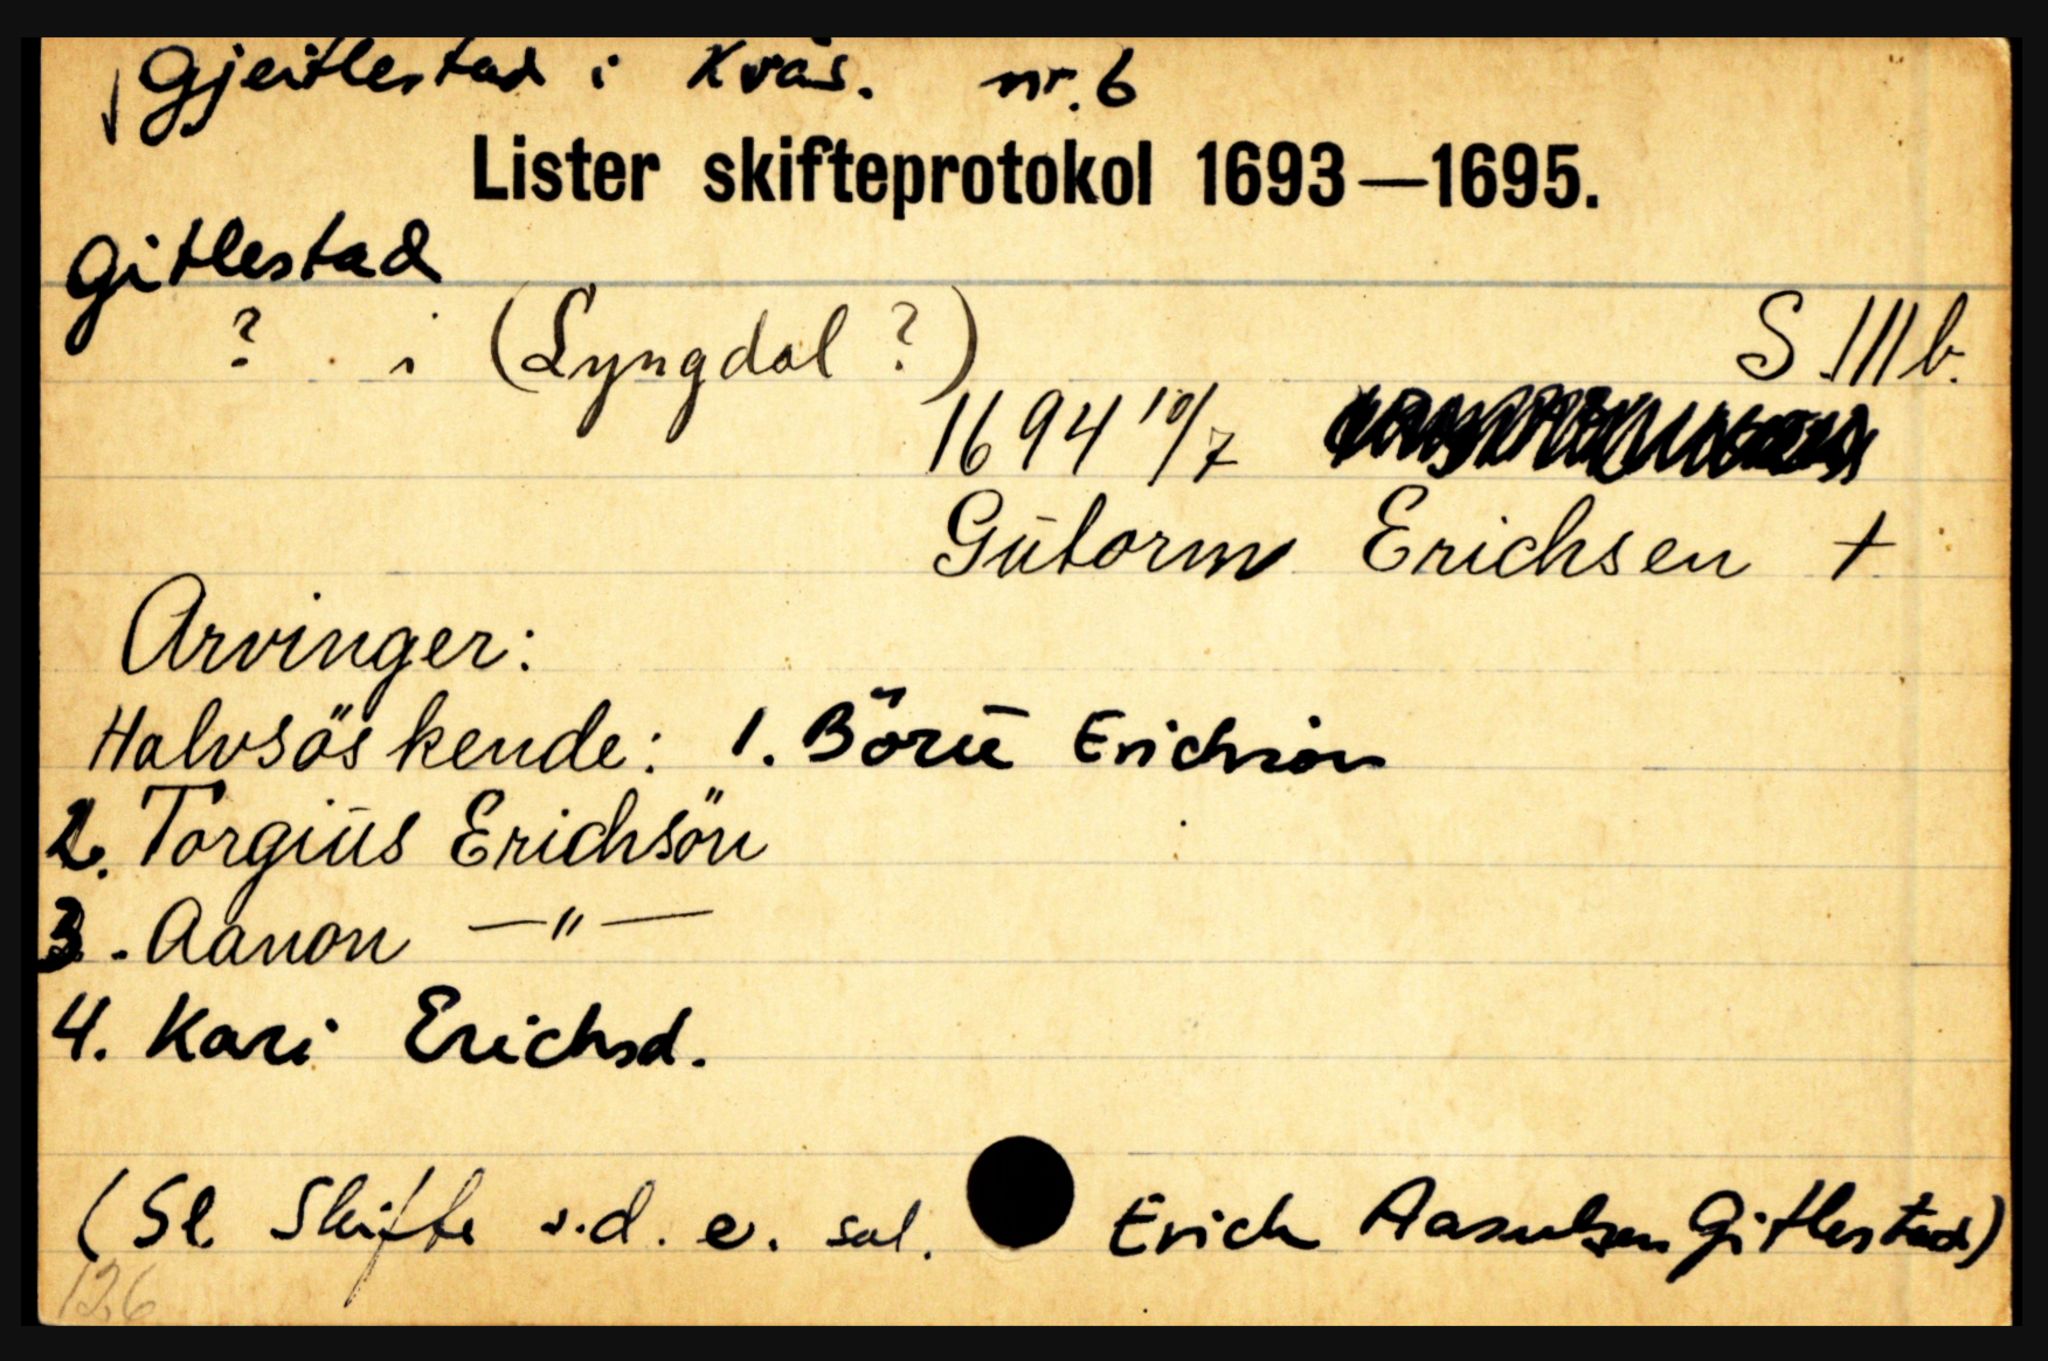 Gjeitlestad i Kvås. nr. 6
Lister skifteprotokol 1693—1695.
Gitlestad
? . i (Lyngdal ?) S. III b.
1694 10/7
Gūtorm Erichsen +
Arvinger:
Halvsöskende: 1. Börū Erichsön
2. Torgiūs Erichsön
3. Aanon —"—
4. Kari Erichsd.
(Se Skifte s.d. e. sal. Erich Aasulsen Gitlestad)
126